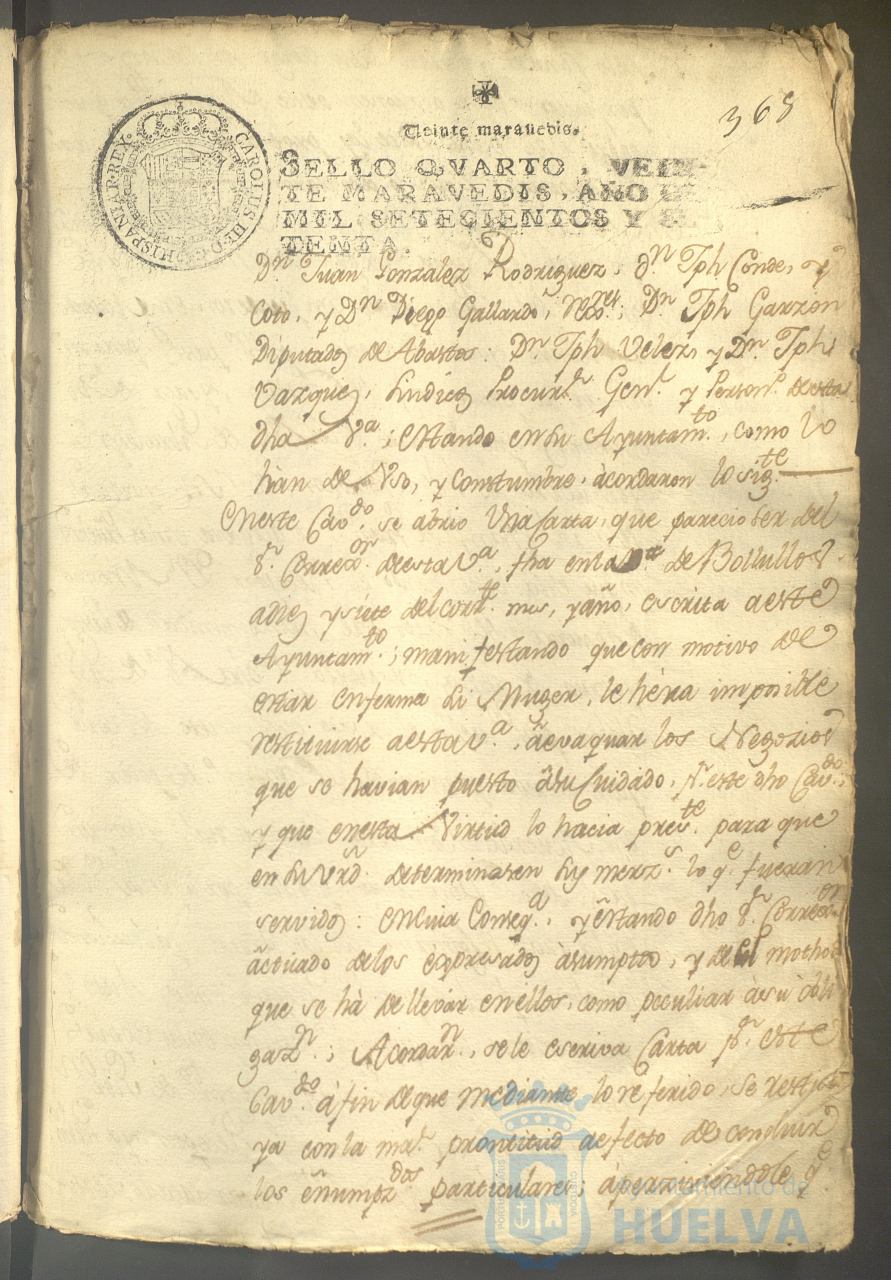 368
Veinte maravedis.
SELLO QVARTO, VEIN
TE MARAVEDIS, AÑO DE
MIL SETECIENTOS Y SE
TENTA.
CAROLUS III D G HISPANIAR REX
Dn Juan Gonzalez Rodriguez, dn Jph Conde, y
Coto, y Dn Diego Gallardo, Rexres; Dn Jph Garzon
Diputados de Abastos: Dn Jph Velez, y Dn Jph
Vazquez, Sindicos Procurs Genl y Personro de esta
dha Va; estando en su Ayuntamto, como lo
han de Vso, y Constumbre, àcordaron lo sigte
En este Cavdo se abrio Vna Carta, que parecio ser del
Sr Correxor de esta Va, fha en la Va de Bollullos
a diez y siete del corrte mes, y año, escrita a este
Ayuntamto; manifestando que con motivo de
estar enferma su Muger, le hèra imposible
restituirse a esta Va, à evaquar los Negozios
que se havian puesto à su Cuidado, pr este dho Cavdo;
y que en esta Virtud lo hacia preste para que
en su Vrd determinasen sus merzs lo qe fueran
servidos: en cuia Conseqa, y estando dho Sr Correxor
àctuado de los èxpresados àsumptos, y de el mothodo
que se hà de llevar en ellos, como peculiar a su òbli
gazn; Acordarn, se le escriva Carta pr este
Cavdo à fin de que mediante lo referido, se restitu
ya con la mar prontitud a efecto de concluir
los enumpzdos particulares; àperziviendole qe
Ayuntamiento de
HUELVA